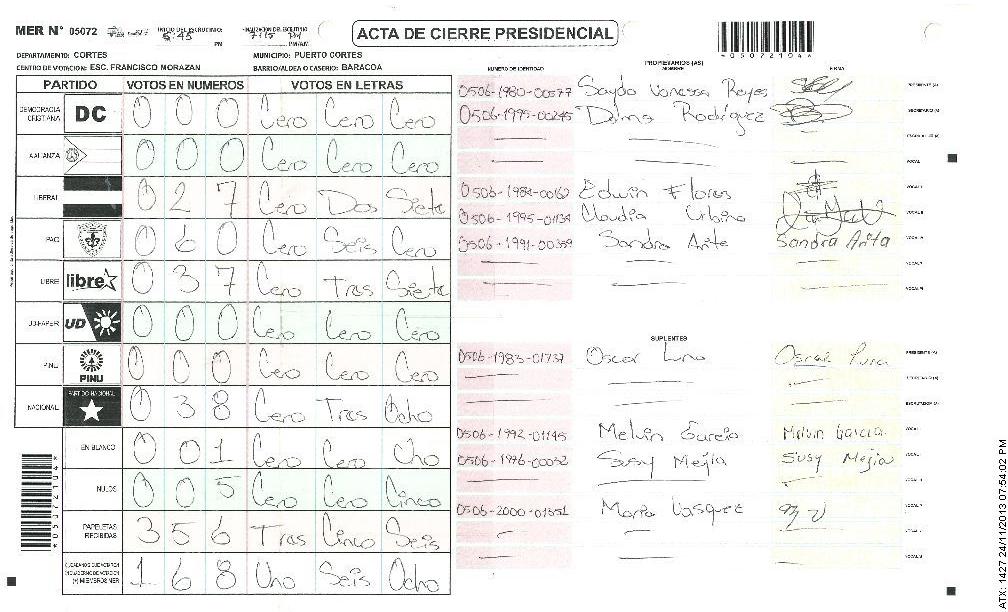 MER N° 05072 INICIO DEL ESCRUTINIO 5:45 PM FINALIZACION DEL ESCRUTINIO 7:15 PM PM/AM
ACTA DE CIERRE PRESIDENCIAL
*05072104*
DEPARTAMENTO: CORTES MUNICIPIO: PUERTO CORTES
CENTRO DE VOTACION: ESC. FRANCISCO MORAZAN BARRIO/ALDEA O CASERIO: BARACOA
PARTIDO VOTOS EN NUMEROS VOTOS EN LETRAS
DEMOCRACIA CRISTIANA DC 0 0 0 Cero Cero Cero
ALIANZA 0 0 0 Cero Cero Cero
LIBERAL 0 2 7 Cero Dos Siete
PAC 0 6 0 Cero Seis Cero
LIBRE libre 0 3 7 Cero Tres Siete
UD-FAPER UD 0 0 0 Cero Cero Cero
PINU PINU 0 0 0 Cero Cero Cero
NACIONAL PARTIDO NACIONAL 0 3 8 Cero Tres Ocho
EN BLANCO 0 0 1 Cero Cero Uno
NULOS 0 0 5 Cero Cero Cinco
PAPELETAS RECIBIDAS 3 5 6 Tres Cinco Seis
(+) MIEMBROS MER 1 6 8 Uno Seis Ocho
*05072104*
PROPIETARIOS (AS)
NUMERO DE IDENTIDAD NOMBRE FIRMA
0506-1980-00577 Sayda Vanessa Reyes PRESIDENTE (A)
0506-1995-00245 Rodriguez SECRETARIO (A)
ESCRUTADOR (A)
VOCAL
0506-1984-00162 Edwin Flores VOCAL
0506-1995-01134 Claudia Urbina VOCAL
0506-1991-00359 Sandra Arita Sandra Arita VOCAL
VOCAL
VOCAL
SUPLENTES
0506-1983-01737 Oscar Luna Oscar Luna PRESIDENTE (A)
SECRETARIO (A)
ESCRUTADOR (A)
0506-1992-01145 Melvin Garcia Melvin Garcia VOCAL
0506-1976-00032 Susy Mejia Susy Mejia VOCAL
VOCAL
0506-2000-01551 Maria Vasquez VOCAL
VOCAL
VOCAL
ATX: 1427 24/11/2013 07:54:02 PM